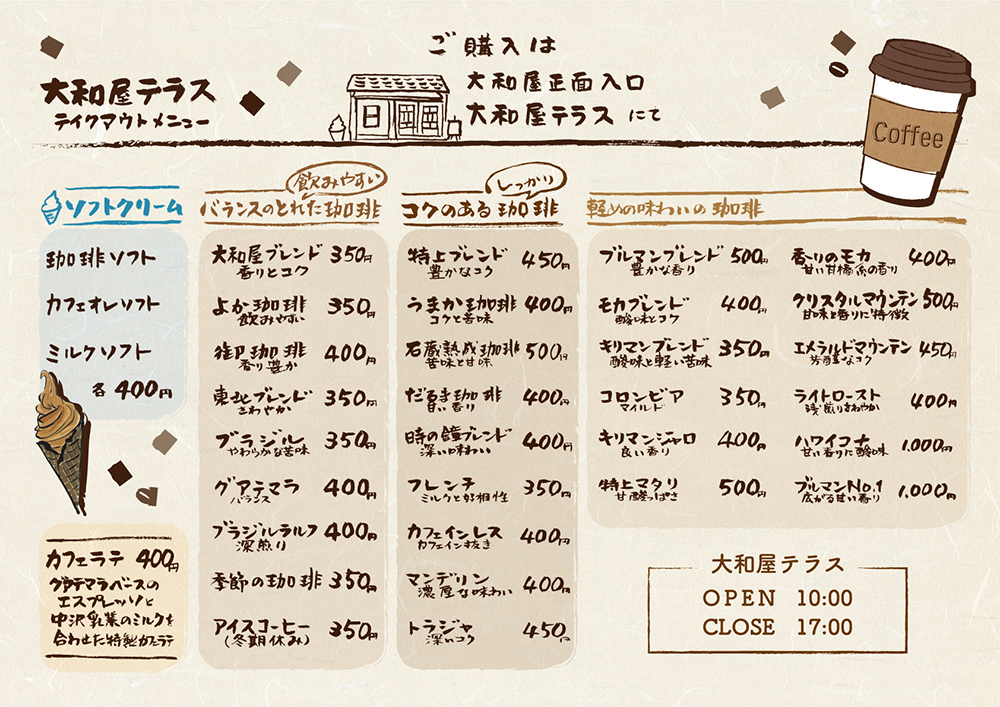 大和屋テラス
テイクアウトメニュー
ご購入は
大和屋正面入口
大和屋テラス にて
Coffee
ソフトクリーム
珈琲ソフト
カフェオレソフト
ミルクソフト
各 400円
カフェラテ 400円
グアテマラベースの
エスプレッソと
中沢乳業のミルクを
合わせた特製カフェラテ
飲みやすい
バランスのとれた珈琲
大和屋ブレンド 350円
香りとコク
よか珈琲 350円
飲みやすい
御珈琲 400円
香り豊か
東北ブレンド 350円
さわやか
ブラジル 350円
やわらかな苦味
グアテマラ 400円
バランス
ブラジルラルフ 400円
深煎り
季節の珈琲 350円
アイスコーヒー 350円
(冬期休み)
しっかり
コクのある珈琲
特上ブレンド 450円
豊かなコク
うまか珈琲 400円
コクと苦味
石蔵熟成珈琲 500円
苦味と甘味
だるま珈琲 400円
甘い香り
時の鐘ブレンド 400円
深い味わい
フレンチ 350円
ミルクと好相性
カフェインレス 400円
カフェイン抜き
マンデリン 400円
濃厚な味わい
トラジャ 450円
深いコク
軽めの味わいの珈琲
ブルマンブレンド 500円
豊かな香り
モカブレンド 400円
酸味とコク
キリマンブレンド 350円
酸味と軽い苦味
コロンビア 350円
マイルド
キリマンジャロ 400円
良い香り
特上マタリ 500円
甘酸っぱさ
香りのモカ 400円
甘い柑橘系の香り
クリスタルマウンテン 500円
甘味と香りに特徴
エメラルドマウンテン 450円
芳醇なコク
ライトロースト 400円
浅煎りさわやか
ハワイコナ 1,000円
甘い香りに酸味
ブルマンNo.1 1,000円
広がる甘い香り
大和屋テラス
OPEN 10:00
CLOSE 17:00